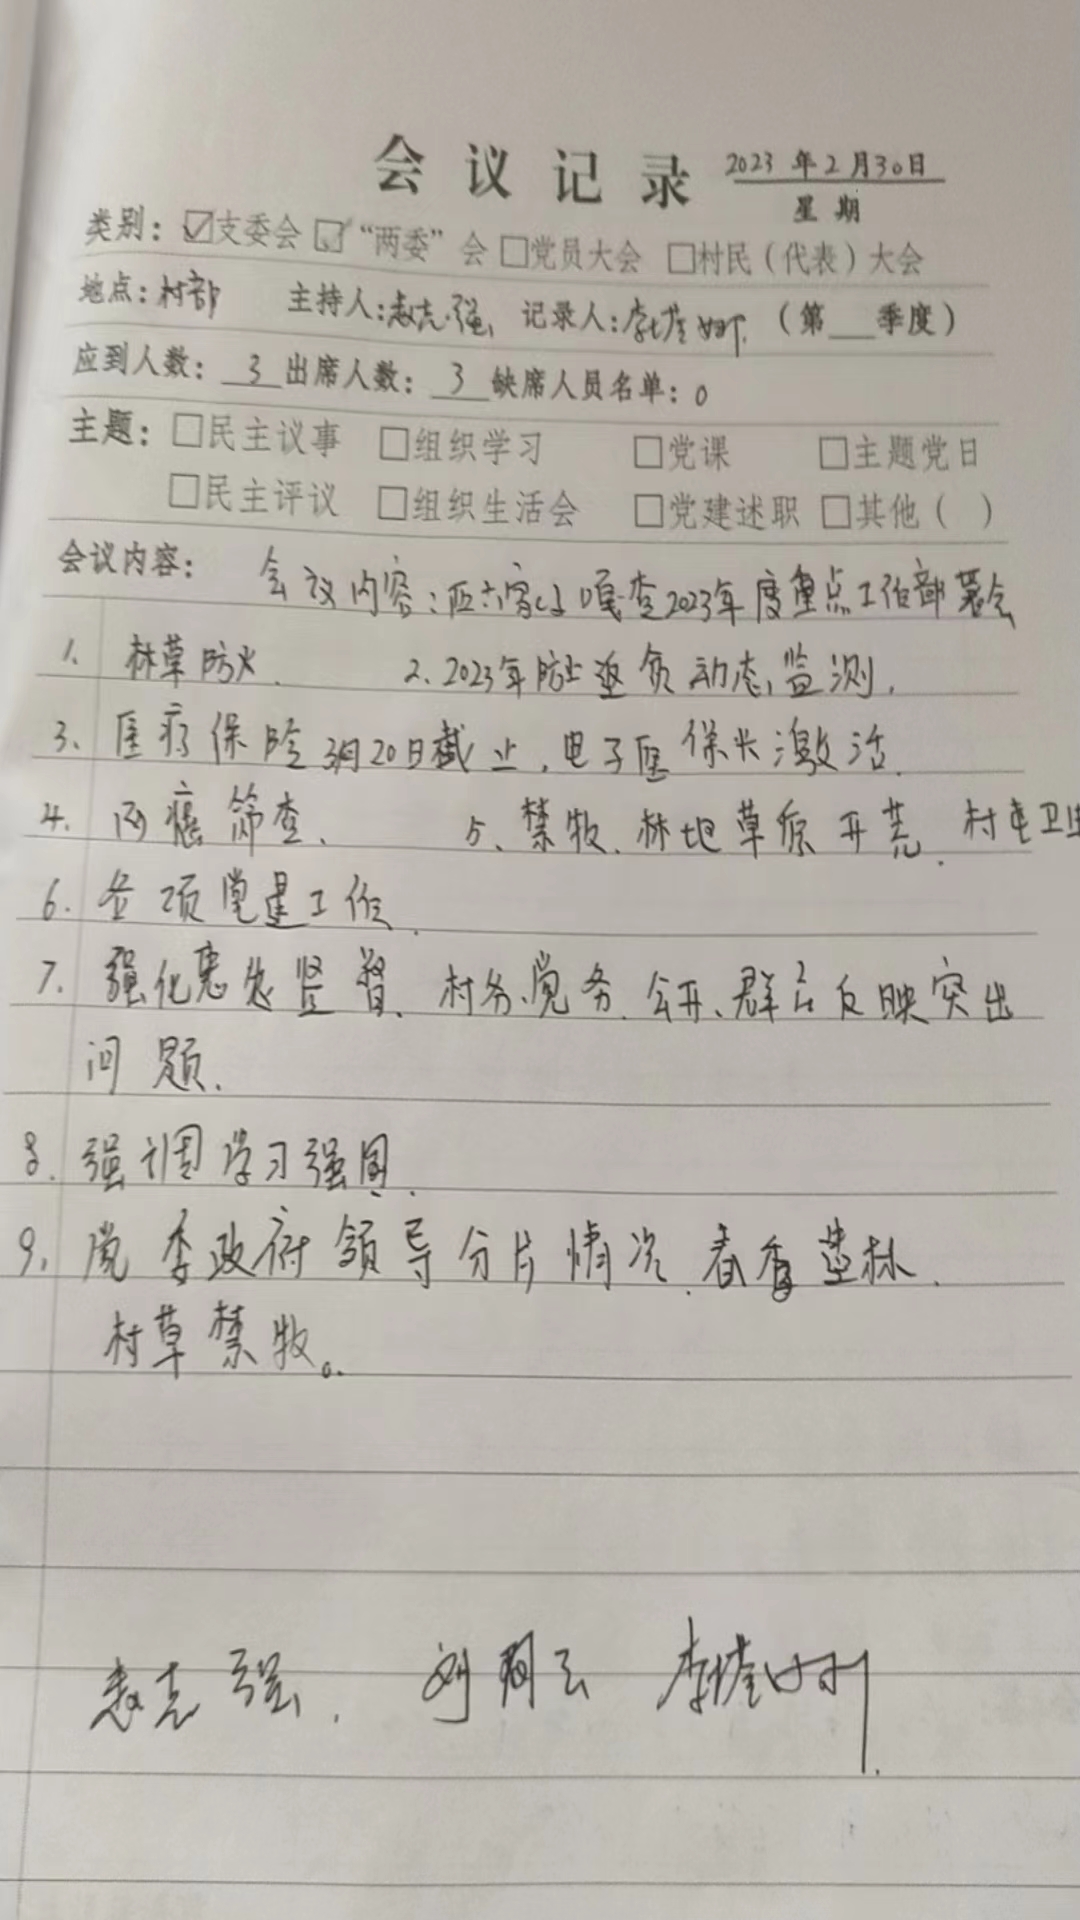 会议记录 2023年2月30日
星期
类别：☑支委会 ☑“两委”会 □党员大会 □村民（代表）大会
地点：村部 主持人：志强 记录人：李 娜 （第 季度）
应到人数：3 出席人数：3 缺席人员名单：0
主题：□民主议事 □组织学习 □党课 □主题党日
□民主评议 □组织生活会 □党建述职 □其他（ ）
会议内容： 会议内容：嘎查2023年度重点工作部署会
1. 林草防火. 2. 2023年防止返贫动态监测.
3. 医疗保险3月20日截止，电子医保 激活.
4. 两癌筛查. 5、禁牧、林地草原开荒. 村屯卫生
6. 各项党建工作.
7. 强化 监督、村务、党务、公开、群众反映突出
问题.
8. 强调学习强国.
9. 党委政府领导分片情况. 春季 林.
村草禁牧。
强. 刘 云 李